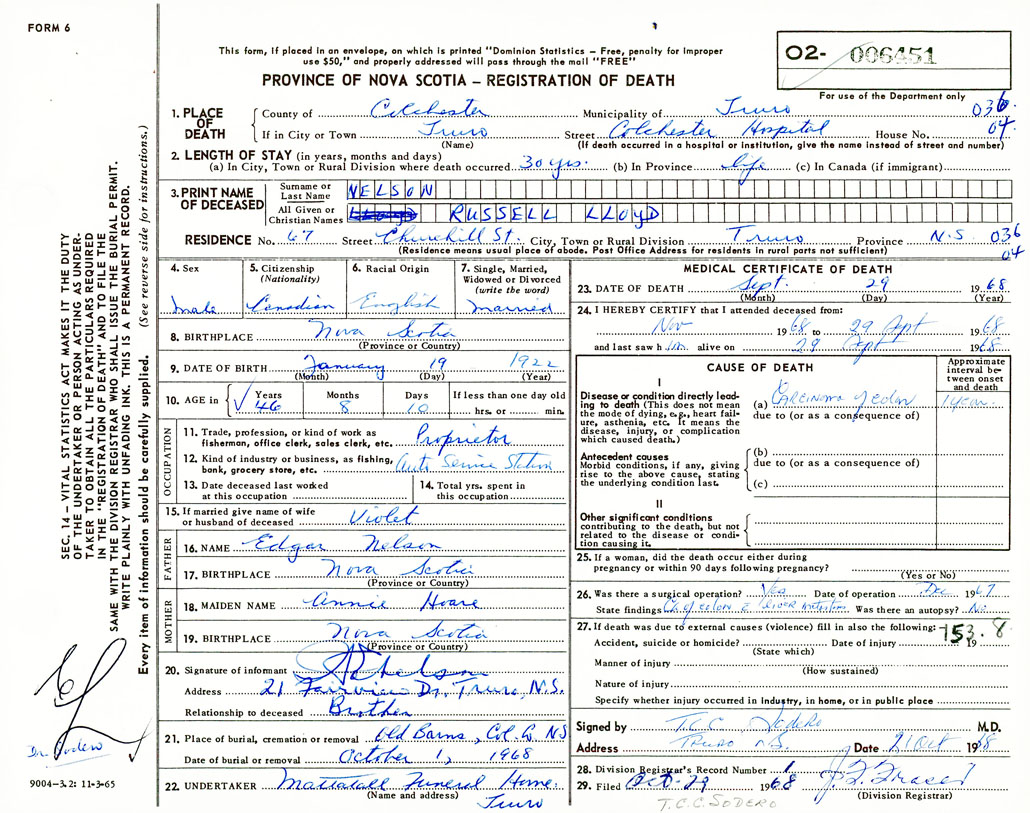 FORM 6
This form, if placed in an envelope, on which is printed "Dominion Statistics – Free, penalty for improper
use $50," and properly addressed will pass through the mail "FREE"
PROVINCE OF NOVA SCOTIA – REGISTRATION OF DEATH
O2- 006451
For use of the Department only
1. PLACE OF DEATH
County of Colchester Municipality of Truro 036
If in City or Town Truro Street Colchester Hospital House No. 04
(Name) (If death occurred in a hospital or institution, give the name instead of street and number)
2. LENGTH OF STAY (in years, months and days)
(a) In City, Town or Rural Division where death occurred 30 yrs. (b) In Province life (c) In Canada (if immigrant)
3. PRINT NAME OF DECEASED
Surname or Last Name NELSON
All Given or Christian Names LLOYD RUSSELL LLOYD
RESIDENCE No. 67 Street Churchill St. City, Town or Rural Division Truro Province N.S. 036
(Residence means usual place of abode. Post Office Address for residents in rural parts not sufficient) 04
4. Sex
male
5. Citizenship (Nationality)
Canadian
6. Racial Origin
English
7. Single, Married, Widowed or Divorced (write the word)
married
8. BIRTHPLACE Nova Scotia
(Province or Country)
9. DATE OF BIRTH January 19 1922
(Month) (Day) (Year)
10. AGE in Years Months Days If less than one day old
46 8 10 hrs. or min.
OCCUPATION
11. Trade, profession, or kind of work as
fisherman, office clerk, sales clerk, etc. Proprietor
12. Kind of industry or business, as fishing,
bank, grocery store, etc. Auto Service Station
13. Date deceased last worked
at this occupation
14. Total yrs. spent in
this occupation
15. If married give name of wife
or husband of deceased Violet
FATHER
16. NAME Edgar Nelson
17. BIRTHPLACE Nova Scotia
(Province or Country)
MOTHER
18. MAIDEN NAME Annie Hoare
19. BIRTHPLACE Nova Scotia
(Province or Country)
20. Signature of informant Nelson
Address 21 Fairview Dr. Truro, N.S.
Relationship to deceased Brother
21. Place of burial, cremation or removal Old Barns, Col. Co. NS
Date of burial or removal October 1, 1968
22. UNDERTAKER Mattatall Funeral Home.
(Name and address) Truro
MEDICAL CERTIFICATE OF DEATH
23. DATE OF DEATH Sept. 29 1968
(Month) (Day) (Year)
24. I HEREBY CERTIFY that I attended deceased from:
Nov 1968 to 29 Sept 1968
and last saw him alive on 29 Sept 1968
CAUSE OF DEATH
Approximate interval between onset and death
I
Disease or condition directly leading
to death (This does not mean
the mode of dying, e.g., heart failure,
asthenia, etc. It means the
disease, injury, or complication
which caused death.)
(a) CARCINOMA of colon 1 year
due to (or as a consequence of)
Antecedent causes
Morbid conditions, if any, giving
rise to the above cause, stating
the underlying condition last.
(b)
due to (or as a consequence of)
(c)
II
Other significant conditions
contributing to the death, but not
related to the disease or condition
causing it.
25. If a woman, did the death occur either during
pregnancy or within 90 days following pregnancy?
(Yes or No)
26. Was there a surgical operation? Yes Date of operation Dec 1967
State findings Ca of colon Liver Was there an autopsy? No
27. If death was due to external causes (violence) fill in also the following: 153.8
Accident, suicide or homicide? Date of injury 19
(State which)
Manner of injury
(How sustained)
Nature of injury
Specify whether injury occurred in Industry, in home, or in public place
Signed by T.C.C. Sodero M.D.
Address TRURO N.S. Date 21 Oct 1968
28. Division Registrar's Record Number 1
29. Filed Oct-29 1968 J. F. Fraser
(Division Registrar)
T.C.C. SODERO
SEC. 14 – VITAL STATISTICS ACT MAKES IT THE DUTY
OF THE UNDERTAKER OR PERSON ACTING AS UNDER-
TAKER TO OBTAIN ALL THE PARTICULARS REQUIRED
IN THE "REGISTRATION OF DEATH" AND TO FILE THE
SAME WITH THE DIVISION REGISTRAR WHO SHALL ISSUE THE BURIAL PERMIT.
WRITE PLAINLY WITH UNFADING INK. THIS IS A PERMANENT RECORD.
Every item of information should be carefully supplied. (See reverse side for instructions.)
Dr. Sodero
9004–3.2: 11-3-65